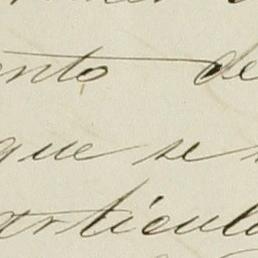 ento de
que se
articulo